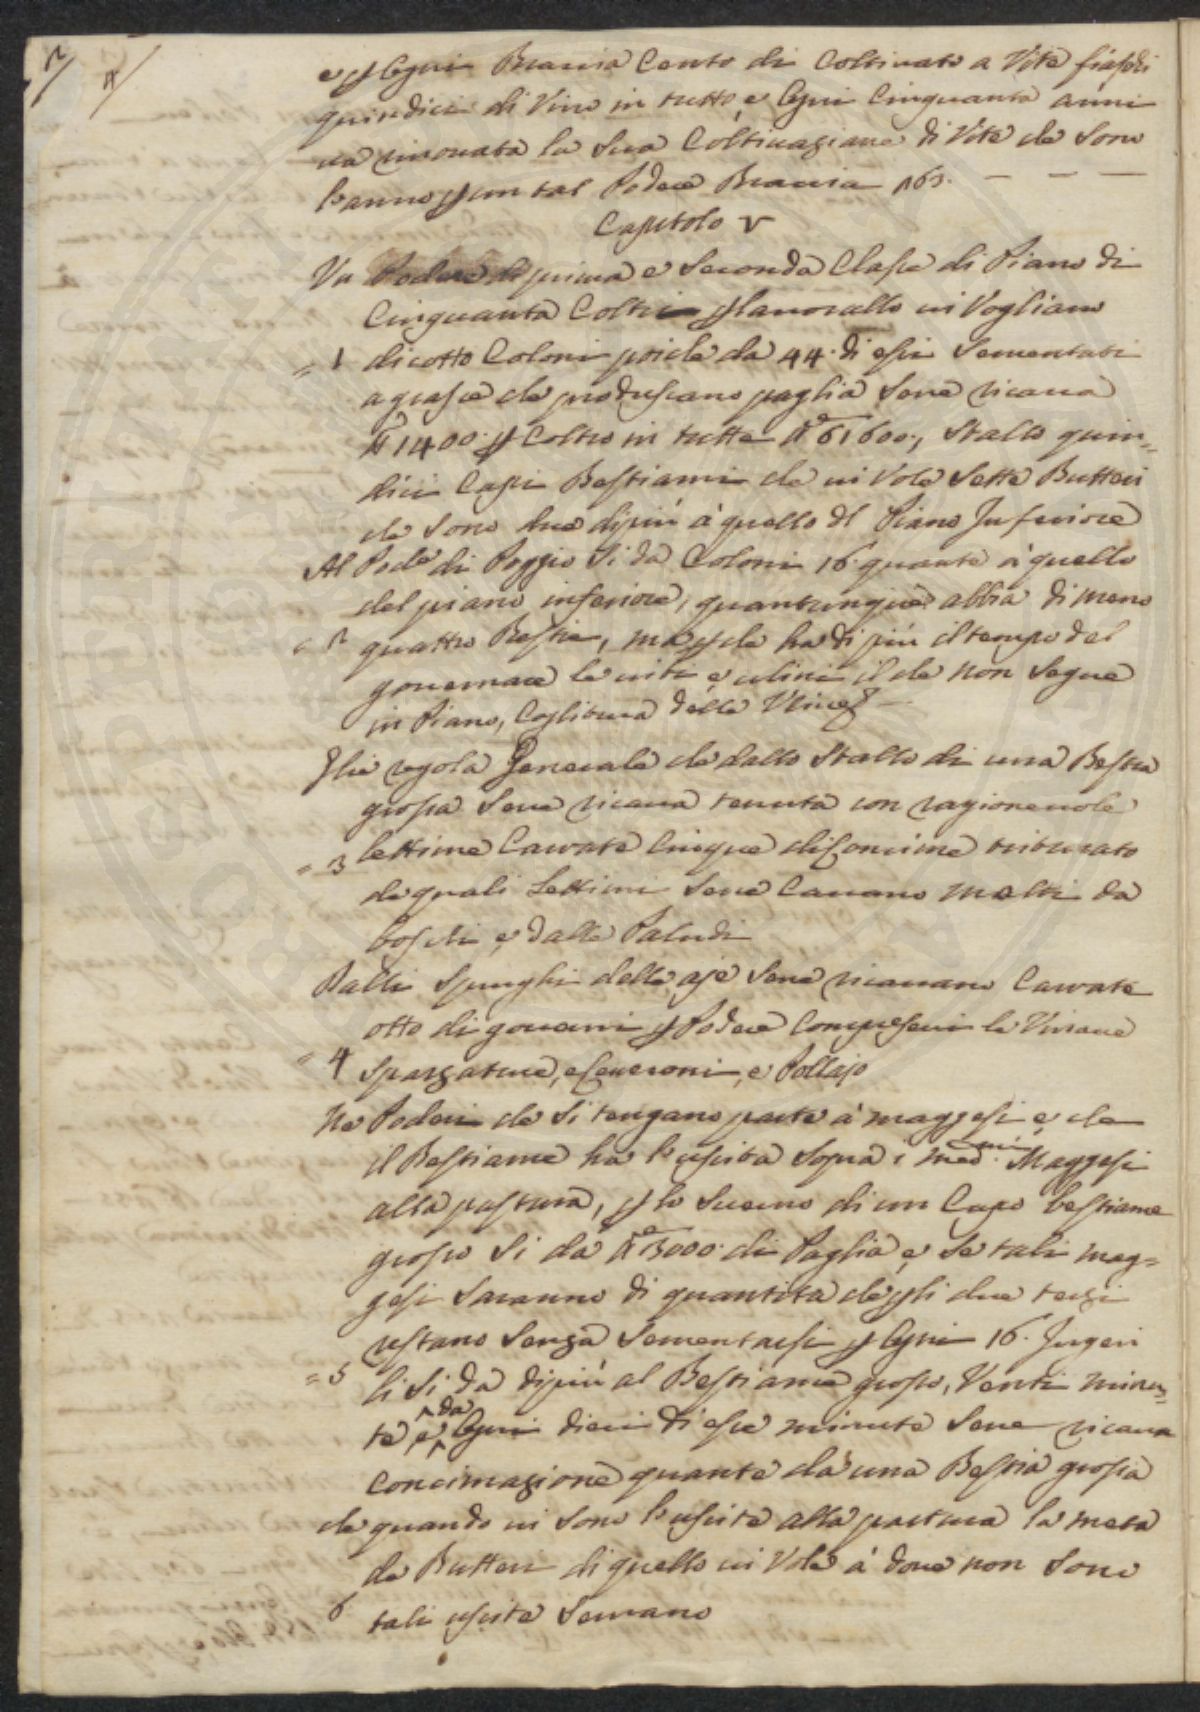 e p ogni Braccia Cento di Coltivato a Vite fiaschi
quindici di Vino in tutto, e Ogni Cinquanta anni
va rinovata la Sua Coltivazione di Vite che Sono
l'anno p un tal Podere Braccia 163. — — —
Capitolo V
Un Podere di prima e Seconda Classe di Piano di
Cinquanta Coltri p lavorallo vi Vogliano
= 1 diciotto Coloni poiche da 44. di essi Sementati
a grascie che produscano paglia Sene ricava
1400. p Coltro in tutte 61600., Stallo quin=
dici Capi Bestiami che vi Vole Sette Butteri
che Sono due dipiù à quello del Piano Inferiore
Al Pode di Poggio Si da Coloni 16. quante à quello
del piano inferiore, quantunque abbia di meno
= 2 quattro Bestie, ma p che ha di più il tempo del
governare le viti e ulivi il che non Segue
in Piano, Coglitura delle Ulive —
Ella regola Generale che dallo Stallo di una Bestia
grossa Sene ricava tenuta con ragionevole
= 3 lettime Carrate Cinque di Concime triturato
de quali Lettimi Sene Cavano molti da
boschi e dalle Paludi
Dalli Spurghi delle aje Sene ricavano Carrate
otto di governi p Podere Compresevi le Vinacce
= 4 Spazzature, e Ceneroni, e Pollajo
Ne Poderi che Si tengano parte à maggesi e che
il Bestiame ha l'uscita Sopra i med.mi Maggesi
alla pastura, p lo Sverno di un Capo bestiame
grosso Si da 3000. di Paglia e Se tali mag=
gesi Saranno di quantità che gli due terzi
restano Senza Sementarsi p Ogni 16. Jugeri
= 5 li Si da dipiù al Bestiame grosso, Venti minu=
te e da Ogni dieci di esse minute Sene ricava
Concimazione quante da una Bestia grossa
che quando vi Sono l'uscite alla pastura la meta
de Butteri di quello vi Vole à dove non Sono
6 tali uscite Servano